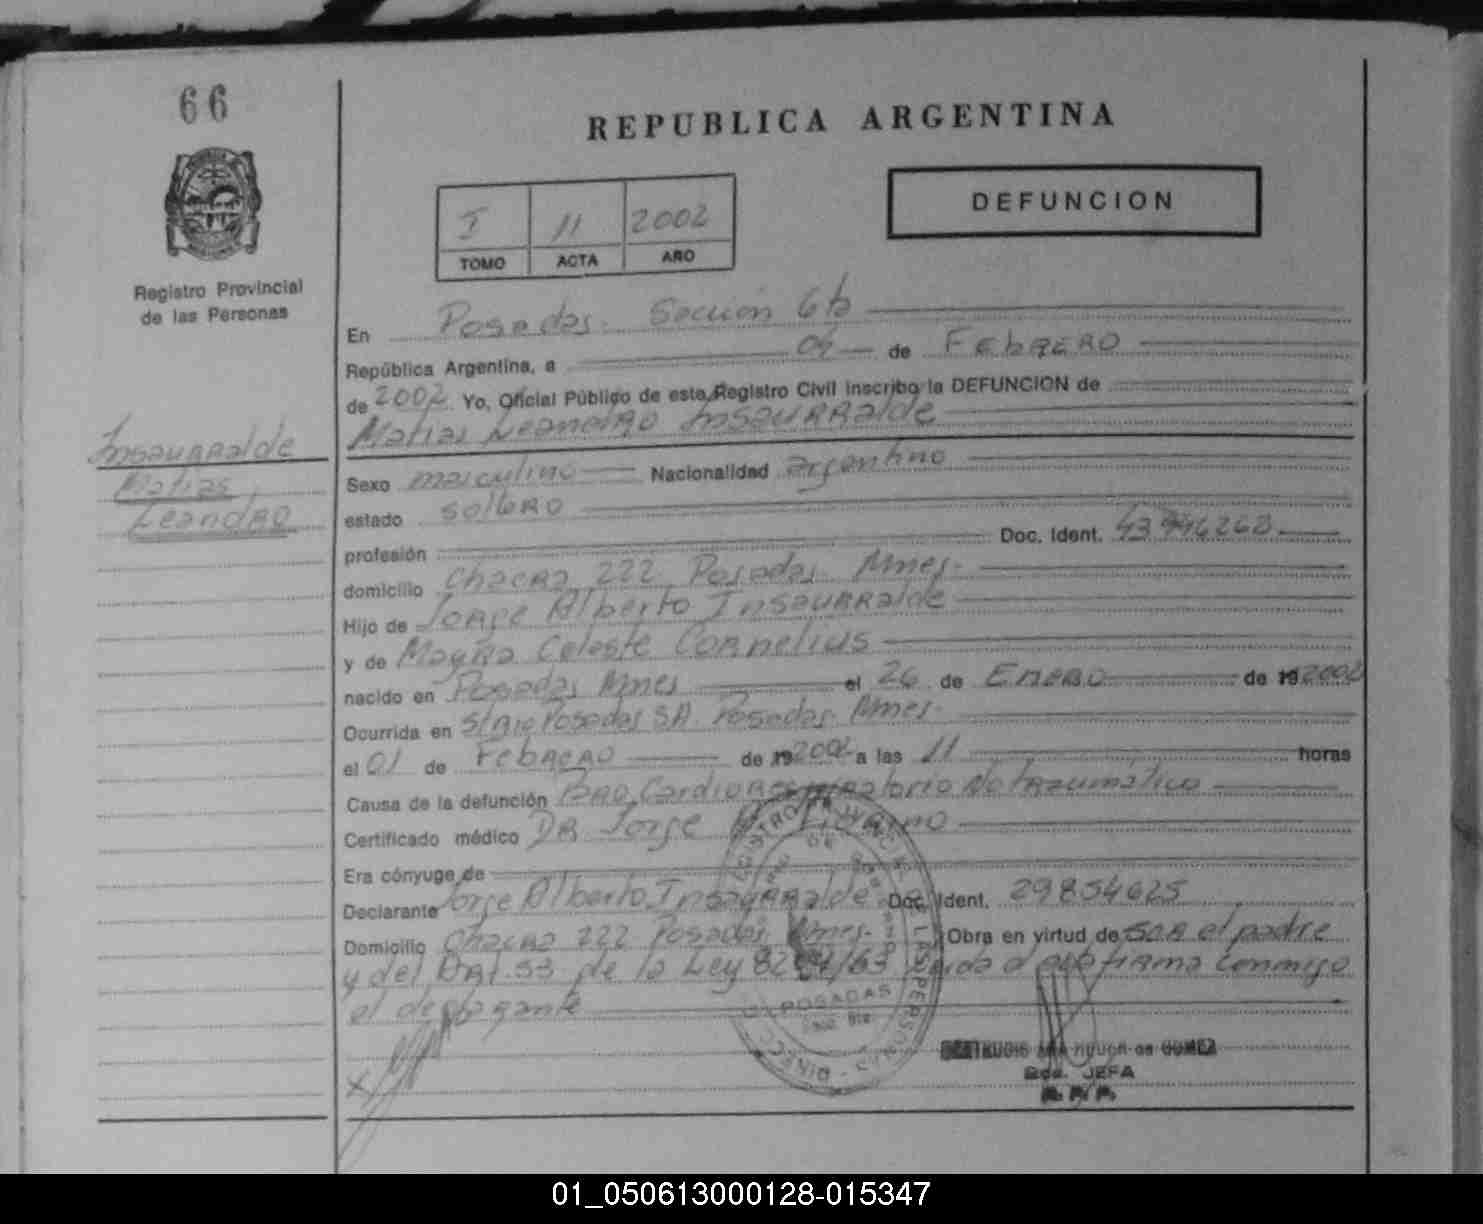 66
REPUBLICA ARGENTINA
DEFUNCION
I 11 2002
TOMO ACTA AÑO
Registro Provincial
de las Personas
En Posadas. Sección 6ta
República Argentina, a 04 de Febrero
de 2002. Yo, Oficial Público de este Registro Civil inscribo la DEFUNCION de
Matias Leandro Insaurralde
Insaurralde
Matias
Leandro
Sexo masculino Nacionalidad argentino
estado soltero
profesión Doc. Ident.
domicilio Chacra 222 Posadas Mnes.
Hijo de Jorge Alberto Insaurralde
y de Mayra Celeste Cornelius
nacido en Posadas Mnes el 26 de Enero de 19 2002
Ocurrida en Posadas SA. Posadas. Mnes.
el 01 de Febrero de 19 2002 a las 11 horas
Causa de la defunción Paro Cardiorrespiratorio No traumático
Certificado médico Dr Jorge
Era cónyuge de
Declarante Jorge Alberto Insaurralde Doc. Ident. 29854625
Domicilio Chacra 222 Posadas Mnes. Obra en virtud de ser el padre
y del Art. 53 de la Ley firma conmigo
el
POSADAS
JEFA
01_050613000128-015347